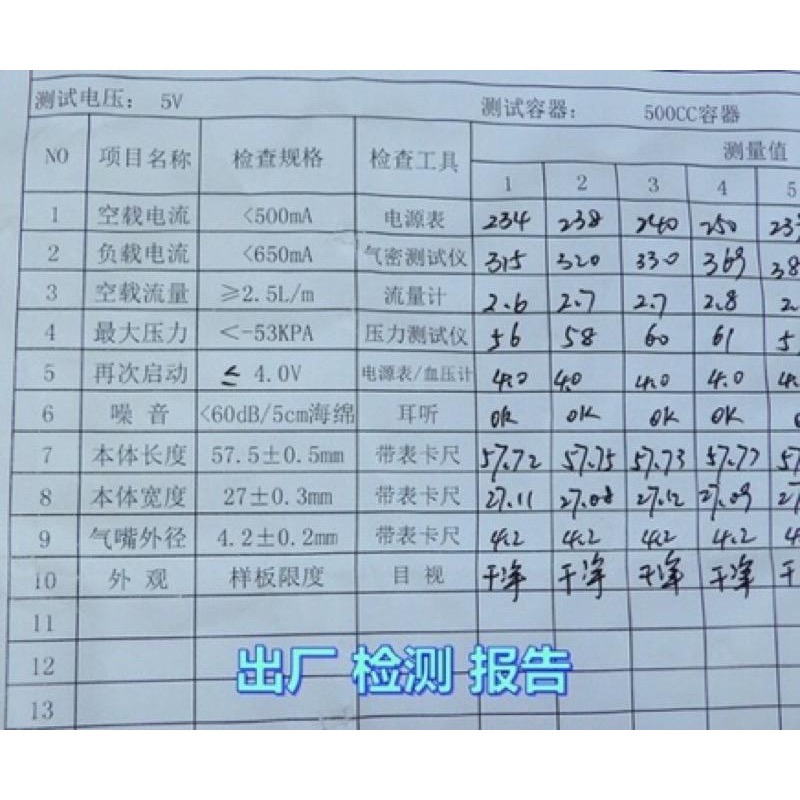 测试电压： 5V 测试容器： 500CC容器
NO 项目名称 检查规格 检查工具 测量值
1 2 3 4 5
1 空载电流 <500mA 电源表 234 238 240 250
2 负载电流 <650mA 气密测试仪 315 320 330 369
3 空载流量 ≥2.5L/m 流量计 2.6 2.7 2.7 2.8
4 最大压力 <-53KPA 压力测试仪 56 58 60 61
5 再次启动 ≤ 4.0V 电源表/血压计 4.0 4.0 4.0 4.0
6 噪音 <60dB/5cm海绵 耳听 OK OK OK OK
7 本体长度 57.5±0.5mm 带表卡尺 57.72 57.75 57.73 57.77
8 本体宽度 27±0.3mm 带表卡尺 27.11 27.08 27.12 27.09
9 气嘴外径 4.2±0.2mm 带表卡尺 4.2 4.2 4.2 4.2
10 外观 样板限度 目视 干净 干净 干净 干净
11
12
13
出厂 检测 报告